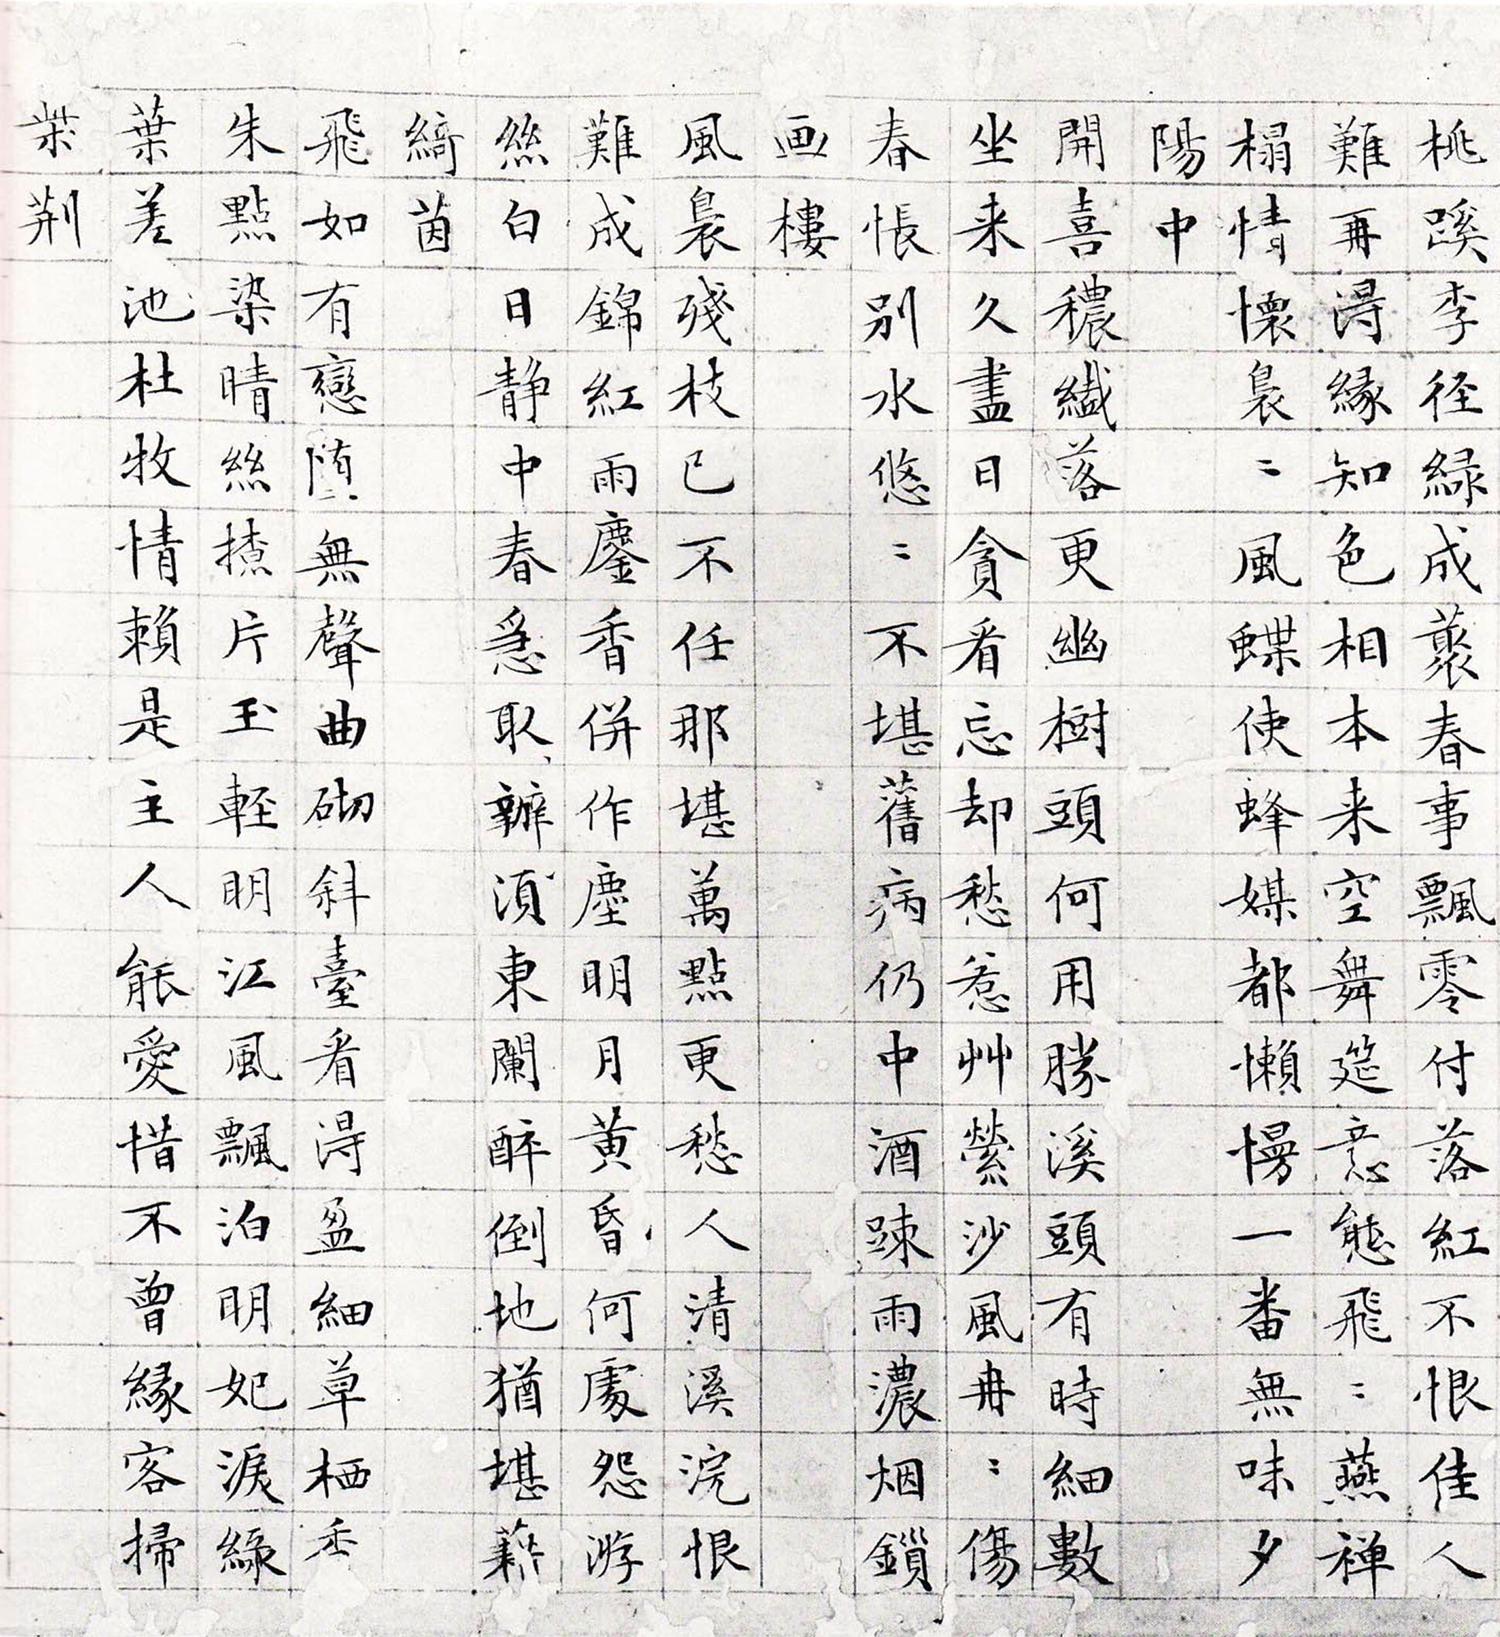 桃蹊李径綠成蘂春事飄零付落紅不恨佳人
難再得緣知色相本来空舞筵意態飛〻燕禅
榻情懷裊〻風蝶使蜂媒都懶慢一番無味夕
陽中
開喜穠纖落更幽樹頭何用勝溪頭有時細數
坐来久盡日貪看忘却愁惹艸縈沙風冉〻傷
春悵別水悠〻不堪舊病仍中酒踈雨濃烟鎖
画樓
風裊殘枝已不任那堪萬點更愁人清溪浣恨
難成錦紅雨鏖香併作塵明月黄昏何處怨游
絲白日静中春急取辦湏東闌醉倒地猶堪藉
綺茵
飛如有戀堕無聲曲砌斜臺看得盈細草栖香
朱點染晴絲撩片玉輊明江風飄泊明妃淚綠
葉差池杜牧情賴是主人能愛惜不曾緣客掃
柴荆